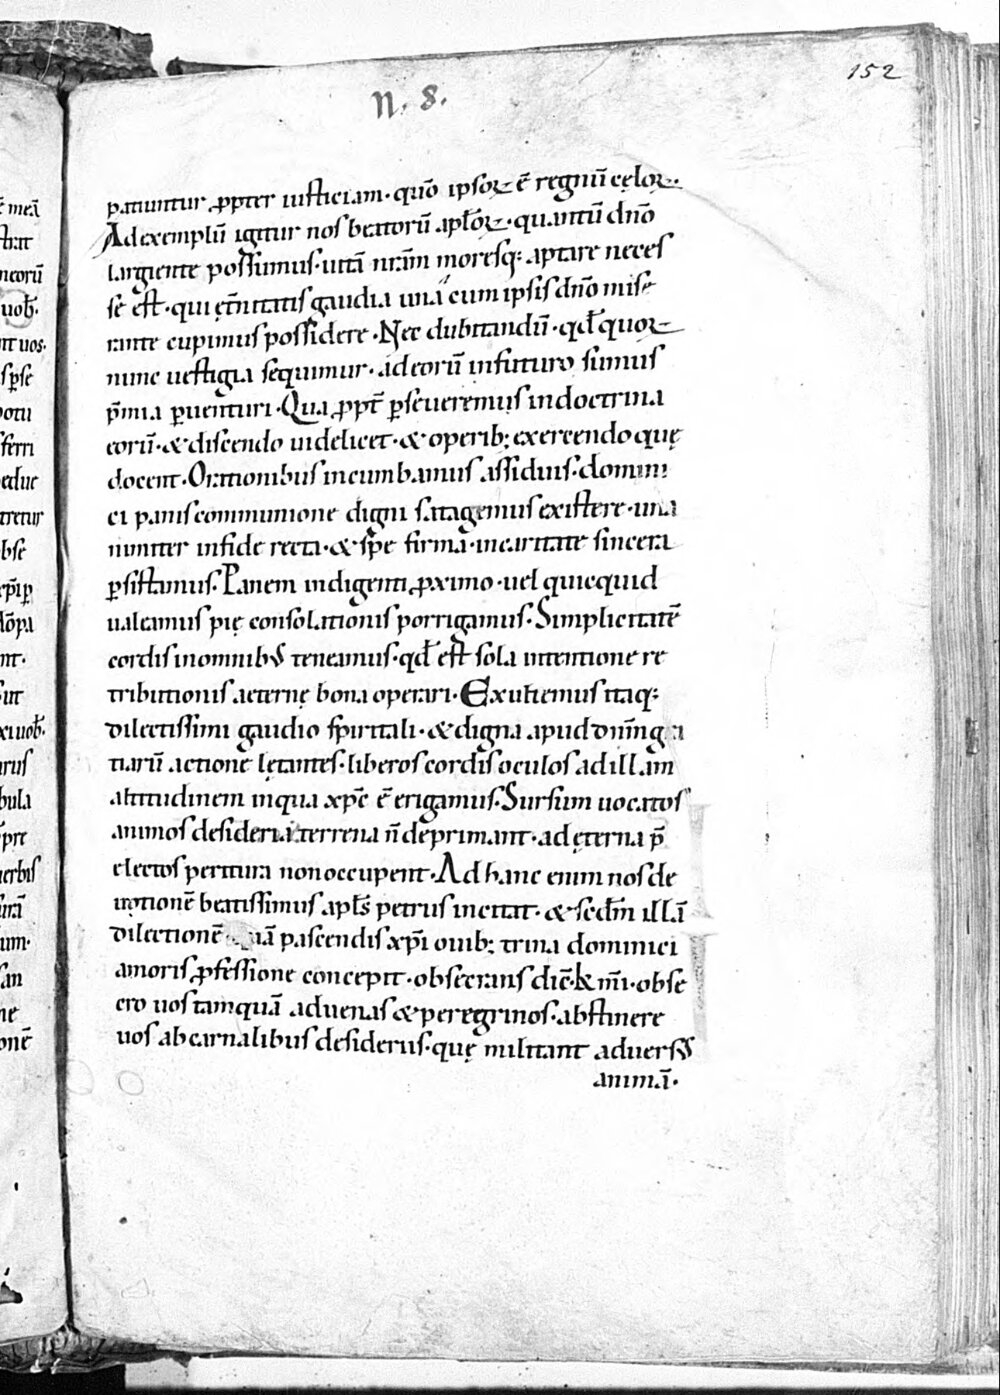 152
N. 8.
patiuntur ꝓpter iusticiam· quō ipsoꝝ ē regnū cęloꝝ·
Ad exemplū igitur nos beatorū aplōꝝ· quantū dnō
largiente possumus· uitā nrām moresq; aptare neces
se est· qui etnitatis gaudia unā cum ipsis dnō mise
rante cupimus possidere· Nec dubitandū· qđ quoꝝ
nunc uestigia sequimur· ad eorū in futuro sumus
p̄mia ꝑuenturi· Qua ꝓpt̄ ꝑseueremus in doctrina
eorū· & discendo uidelicet· & operib; exercendo quę
docent· Orationibus incumbamus assiduis· domini
ci panis communione digni satagemus existere· una
nimiter in fide recta· & spe firma· in caritate sincera
ꝑsistamus· Panem indigenti ꝓximo· uel quicquid
ualeamus pię consolationis porrigamus· Simplicitatē
cordis in omnibus teneamus· qđ est sola intentione re
tributionis aeternę bona operari· Exultemus itaq;
dilectissimi gaudio spiritali· & digna apud dnm̄ g a
tiarū actione lętantes· liberos cordis oculos ad illam
altitudinem in qua xpc̄ ē erigamus· Sursum uocatos
animos desideria terrena n̄ deprimant· ad ęterna p̄
electos peritura non occupent· Ad hanc enim nos de
uotionē beatissimus apls̄ petrus incitat· & secdm̄ illā
dilectionē quā pascendis xpī ouib; trina dominici
amoris ꝓfessione concepit· obsecrans dic̄· K mi· obse
cro uos tamquā aduenas & peregrinos· abstinere
uos ab carnalibus desideriis· quę militant aduersus
animā·